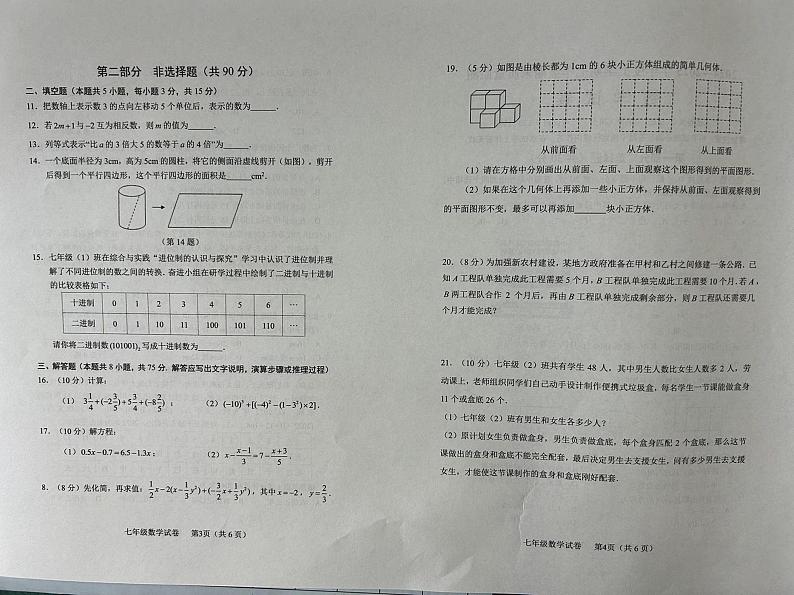 第二部分 非选择题（共 90 分）
二、填空题（本题共 5 小题，每小题 3 分，共 15 分）
11．把数轴上表示数 3 的点向左移动 5 个单位后，表示的数为______．
12．若 2m+1 与 −2 互为相反数，则 m 的值为______．
13．列等式表示“比 a 的 3 倍大 5 的数等于 a 的 4 倍”为______．
14．一个底面半径为 3cm，高为 5cm 的圆柱，将它的侧面沿虚线剪开（如图），剪开
后得到一个平行四边形，这个平行四边形的面积是______cm²．
（第 14 题）
15．七年级（1）班在综合与实践“进位制的认识与探究”学习中认识了进位制并理
解了不同进位制的数之间的转换．奋进小组在研学过程中绘制了二进制与十进制
的比较表格如下：
十进制 0 1 2 3 4 5 6 ⋯
二进制 0 1 10 11 100 101 110 ⋯
请你将二进制数 (101001)₂ 写成十进制数为______．
三、解答题（本题共 8 小题，共 75 分．解答应写出文字说明，演算步骤或推理过程）
16．（10 分）计算：
（1） 3 1/4 +(−2 3/5)+5 3/4 +(−8 2/5) ； （2）(−10)³+[(−4)²−(1−3²)×2]．
17．（10 分）解方程：
（1）0.5x−0.7=6.5−1.3x； （2）x−(x−1)/3=7−(x+3)/5．
8．（8 分）先化简，再求值：1/2 x−2(x−1/3 y²)+(−3/2 x+1/3 y²)，其中 x=−2，y=2/3．
七年级数学试卷 第3页（共 6 页）
19．（5 分）如图是由棱长都为 1cm 的 6 块小正方体组成的简单几何体．
从前面看 从左面看 从上面看
（1）请在方格中分别画出从前面、左面、上面观察这个图形得到的平面图形．
（2）如果在这个几何体上再添加一些小正方体，并保持从前面、左面观察得到
的平面图形不变，最多可以再添加______块小正方体．
20．（8 分）为加强新农村建设，某地方政府准备在甲村和乙村之间修建一条公路．已
知 A 工程队单独完成此工程需要 5 个月，B 工程队单独完成此工程需要 10 个月．若 A，
B 两工程队合作 2 个月后，再由 B 工程队单独完成剩余部分，则 B 工程队还需要几
个月才能完成？
21．（10 分）七年级（2）班共有学生 48 人，其中男生人数比女生人数多 2 人，劳
动课上，老师组织同学们自己动手设计制作便携式垃圾盒，每名学生一节课能做盒身
11 个或盒底 26 个．
（1）七年级（2）班有男生和女生各多少人？
（2）原计划女生负责做盒身，男生负责做盒底，每个盒身匹配 2 个盒底，那么这节
课做出的盒身和盒底不能完全配套，最后决定男生去支援女生，问有多少男生去支援
女生，才能使这节课制作的盒身和盒底刚好配套．
七年级数学试卷 第4页（共 6 页）